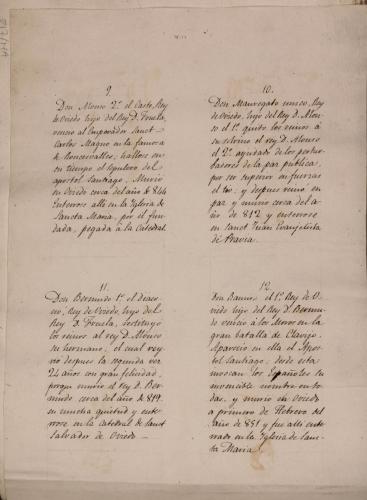 9.
Don Alonso 2º. el Casto, Rey
de Oviedo hijo del Rey D. Fruela,
vencio al Emperador Sanct
Carlos Magno en la famosa
de Roncesvalles; hallose en
su tiempo el sepulcro del
apostol Santiago, Murio
en Oviedo cerca del año de 844
Enterrose alli en la Yglesia de
Sancta Maria, por el fun
dada, pegada á la Catedral
10.
Don Mauregato unico, Rey
de Oviedo, hijo del Rey D. Alon
so el 1º. quito los reinos á
su sobrino el rey D. Alonso
el 2º. ayudado de los pertur
badores de la paz publica,
por ser superior en fuerzas
el tio; y despues reino en
paz y murio cerca del a
ño de 812 y enterrose
en Sanct Juan Evangelista
de Pravia.
11.
Don Bermudo 1º. el diaco
no, Rey de Oviedo, hijo del
Rey D. Fruela, restituyo
los reinos al rey D. Alonso
su hermano, el cual rey
no despues la segunda vez
24 años con gran felicidad,
porque murio el rey D. Ber
mudo cerca del año de 819.
en mucha quietud y ente
rrose en la catedral de Sanct
Salvador de Oviedo
12.
Don Ramiro el 1º. Rey de O
viedo hijo del Rey D. Bermu
do vencio á los Moros en la
gran batalla de Clavijo
Aparecio en ella el Apos
tol Santiago; desde esta
invocan los Españoles su
invencible nombre en to
das, y murio en Oviedo
a primero de Febrero del
año de 851 y fue alli ente
rrado en la Yglesia de Sanc
ta Maria